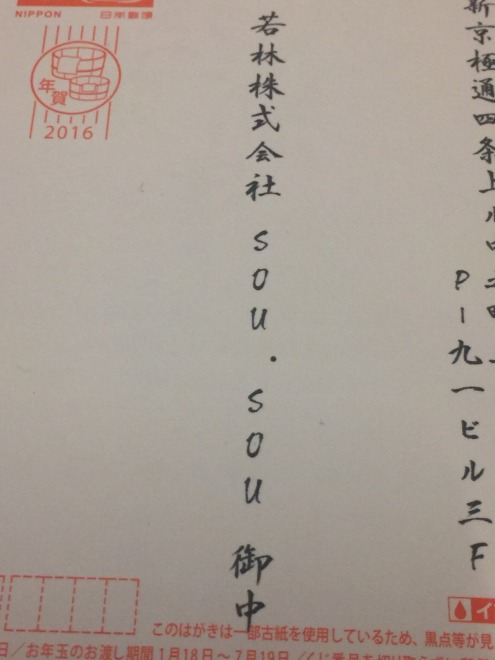 新京極通四条上ル
P-九一ビル三F
若林株式会社 SOU・SOU 御中
NIPPON 日本郵便
年賀
2016
このはがきは一部古紙を使用しているため、黒点等が見
日/お年玉のお渡し期間1月18日~7月19日/くじ番号